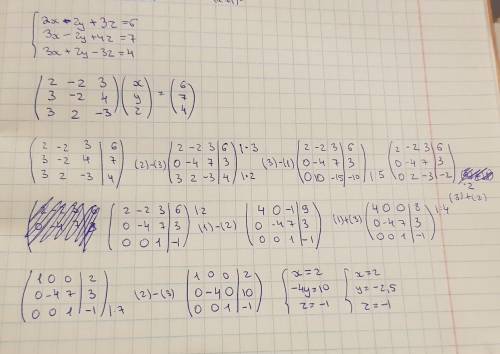 { 2x - 2y + 3z = 6
3x - 2y + 4z = 7
3x + 2y - 3z = 4
( 2 -2 3 ; 3 -2 4 ; 3 2 -3 ) ( x ; y ; z ) = ( 6 ; 7 ; 4 )
( 2 -2 3 | 6 ; 3 -2 4 | 7 ; 3 2 -3 | 4 ) (2)-(3) ( 2 -2 3 | 6 ; 0 -4 7 | 3 ; 3 2 -3 | 4 ) |·3 |·2 (3)-(1) ( 2 -2 3 | 6 ; 0 -4 7 | 3 ; 0 10 -15 | -10 ) |:5 ( 2 -2 3 | 6 ; 0 -4 7 | 3 ; 0 2 -3 | -2 ) |·2 (3)+(2)
( 2 -2 3 | 6 ; 0 -4 7 | 3 ; 0 0 1 | -1 ) |·2 (1)-(2) ( 4 0 -1 | 9 ; 0 -4 7 | 3 ; 0 0 1 | -1 ) (1)+(3) ( 4 0 0 | 8 ; 0 -4 7 | 3 ; 0 0 1 | -1 ) |:4
( 1 0 0 | 2 ; 0 -4 7 | 3 ; 0 0 1 | -1 ) |·7 (2)-(3) ( 1 0 0 | 2 ; 0 -4 0 | 10 ; 0 0 1 | -1 ) { x=2 ; -4y=10 ; z=-1 { x=2 ; y=-2,5 ; z=-1